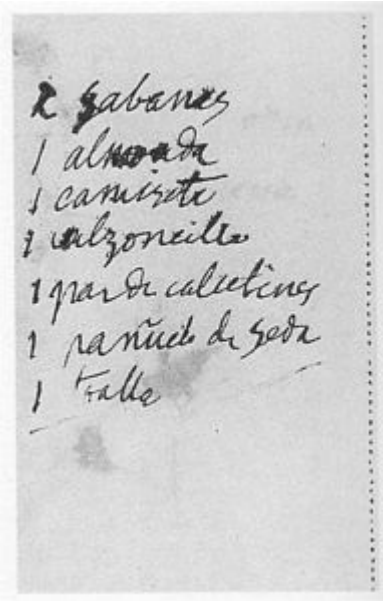 2 sabanas
1 almoada
1 camiseta
1 calzoncillo
1 par de calcetines
1 pañuelo de seda
1 toalla